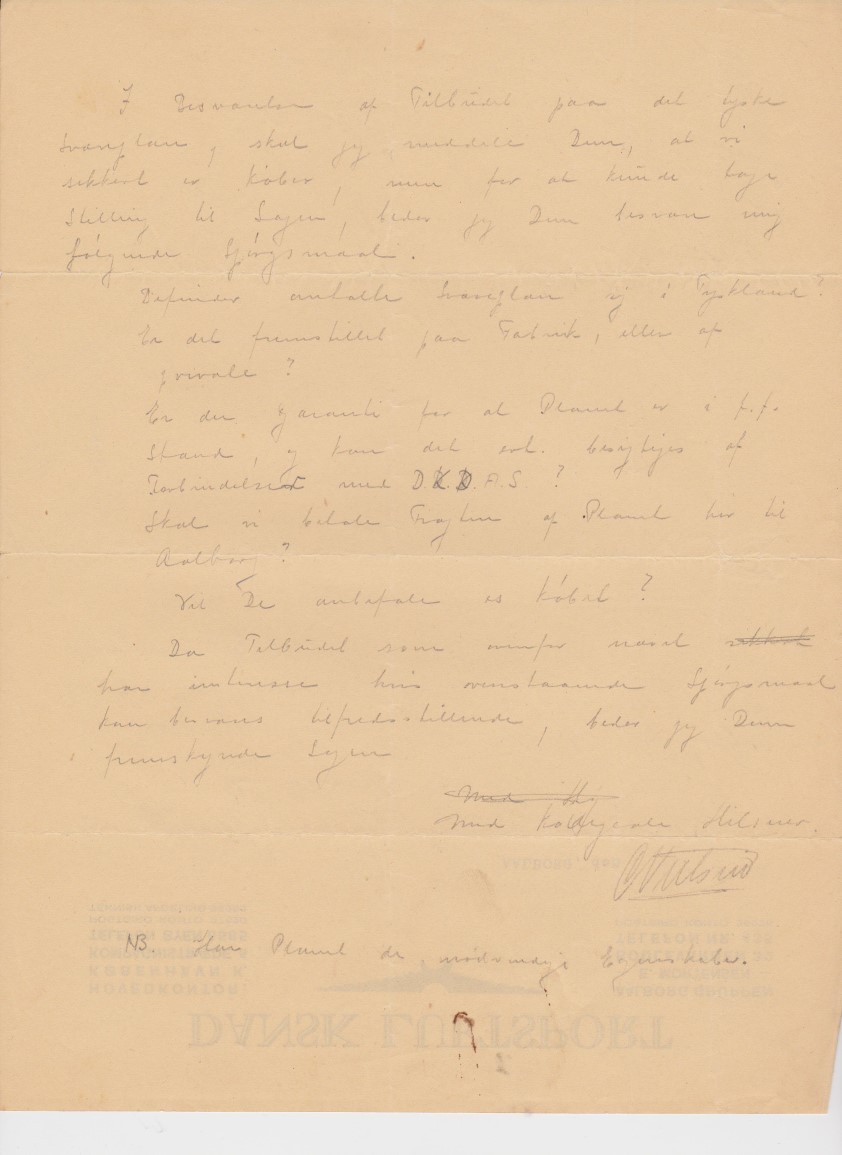 I Besvarelse af Tilbudet paa det tyske
Svæveplan, skal jeg meddele Dem, at vi
sikkert er Køber, men for at kunde tage
Stilling til Sagen, beder jeg Dem besvare mig
følgende Spørgsmaal.
Befinder omtalte Svæveplan sig i Tyskland?
Er det fremstillet paa Fabrik, eller af
private?
Er der Garanti for at Planet er i f.f.
Stand, og kan det evt. besigtiges af
Forbindelser med D. A.S. ?
Skal vi betale Fragten af Planet her til
Aalborg?
Vil De anbefale os Købet?
Da Tilbudet som ovenfor nævnt
har interesse hvis ovenstaaende Spørgsmaal
kan besvares tilfredsstillende, beder jeg Dem
fremskynde Sagen
Med
Med Kollegiale Hilsner.
NB. Har Planet de nødvendige Egenskaber.
AALBORG, den
AALBORG GRUPPEN
TELEFON NR.
HOVEDKONTOR:
KØBENHAVN K.
TELEFON BYEN
DANSK LUFTSPORT